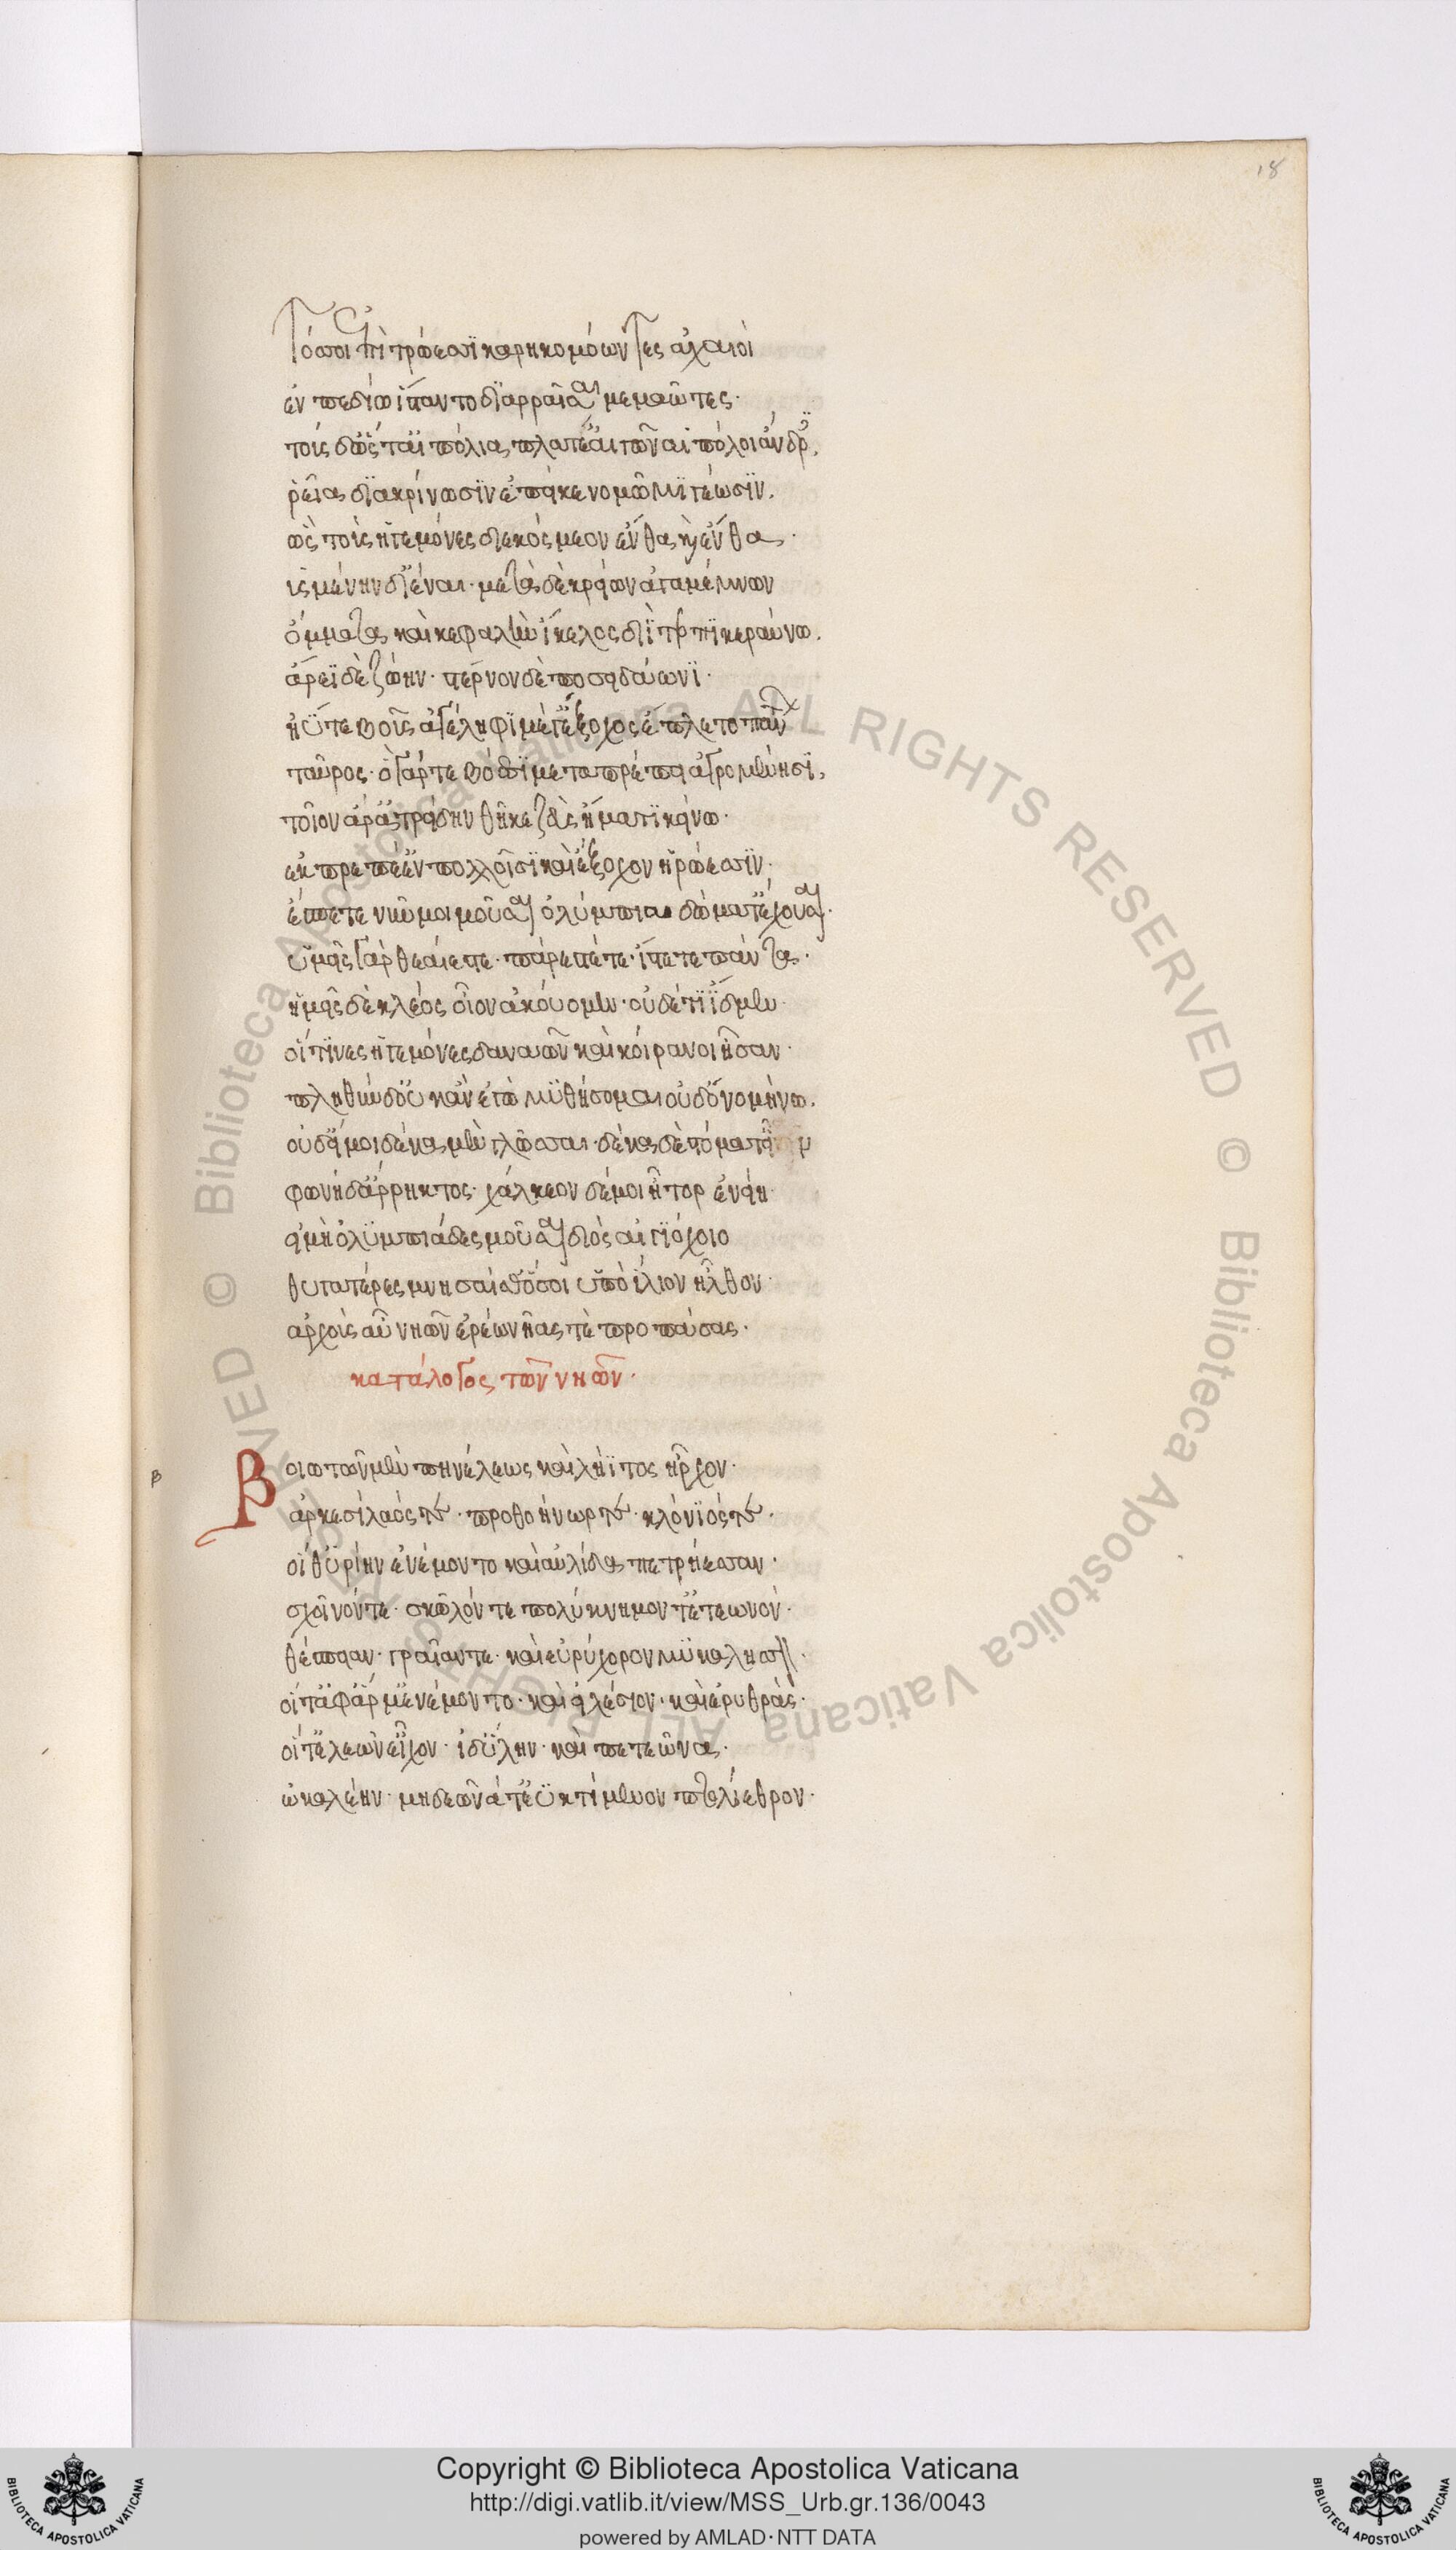 18
τόσσοι ἐπὶ τρώεσσϊ καρηκομόωντες ἀχαιοὶ
ἐν πεδίω ἵσταντο διαρραῖσαι μεμαῶτες·
τοὺς δ' ὥς τ' αἰπόλια πλατέ' αἰγῶν αἰπόλοι ἄνδρες,
ῥεῖα διακρίνωσϊν ἐπεί κε νομῶ μϊγέωσϊν.
ὣς τοὺς ἡγεμόνες διεκόσμεον ἔνθα κ(αὶ) ἔνθα·
ὑσμίνην δ' ἰέναι· μετὰ δὲ κρείων ἀγαμέμνων
ὄμματα καὶ κεφαλὴν ἵκελος διῒ τερπϊκεραύνω.
ἄρεϊ δὲ ζώνην· στέρνον δὲ ποσειδάωνϊ·
ἠΰτε βοῦς ἀγέληφϊ μέγ' ἔξοχος ἔπλετο πάντων
ταῦρος· ὁ γάρ τε βόεσσϊ μεταπρέπει ἀγρομένησϊ,
τοῖον ἄρ' ἀτρείδην θῆκε ζεὺς ἤματϊ κείνω·
ἐκπρεπέ' ἐν πολλοῖσϊ καὶ ἔξοχον ἡρώεσσϊν·
ἔσπετε νῦν μοι μοῦσαι ὀλύμπια δώματ' ἔχουσαι·
ὑμεῖς γὰρ θεαί ἐστε· πάρεστέ τε· ἴστέ τε πάντα·
ἡμεῖς δὲ κλέος οἶον ἀκούομεν· οὐδέ τϊ ἴδμεν·
οἵ τϊνες ἡγεμόνες δαναῶν καὶ κοίρανοι ἦσαν·
πληθὺν δ' οὐκ ἂν ἐγὼ μϋθήσομαι οὐδ' ὀνομήνω.
οὐδ' εἴ μοι δέκα μὲν γλῶσσαι· δέκα δὲ στόματ' εἶεν
φωνὴ δ' ἄρρηκτος· χάλκεον δέ μοι ἦτορ ἐνείη·
εἰ μὴ ὀλϋμπιάδες μοῦσαι διὸς αἰγϊόχοιο
θυγατέρες μνησαίαθ' ὅσοι ὑπὸ ἴλιον ἦλθον·
ἀρχοὺς αὖ νηῶν ἐρέω νῆάς τε προπάσας·
κατάλογος τῶν νηῶν·
β
Βοιωτῶν μὲν πηνέλεως καὶ λήϊτος ἦρχον·
ἀρκεσίλαός τε· προθοήνωρ τε· κλόνϊός τε·
οἵ θ' ὑρίην ἐνέμοντο καὶ αὐλίδα πετρήεσσαν·
σχοῖνόν τε· σκῶλόν τε πολύκνημόν τ' ἐτεωνόν·
θέσπειαν· γραῖάν τε· καὶ εὐρύχορον μϋκαλησσόν·
οἵ τ' ἀμφ' ἅρμ' ἐνέμοντο· καὶ εἰλέσιον· καὶ ἐρυθράς·
οἵ τ' ἐλεῶν' εἶχον· ἠδ' ὕλην· καὶ πετεῶνα·
ὠκαλέην· μηδεῶνά τ' ἐϋκτίμενον πτολίεθρον·
Copyright © Biblioteca Apostolica Vaticana
http://digi.vatlib.it/view/MSS_Urb.gr.136/0043
powered by AMLAD·NTT DATA
© Biblioteca Apostolica Vaticana ALL RIGHTS RESERVED
© Biblioteca Apostolica Vaticana ALL RIGHTS RESERVED
BIBLIOTECA APOSTOLICA VATICANA
BIBLIOTECA APOSTOLICA VATICANA